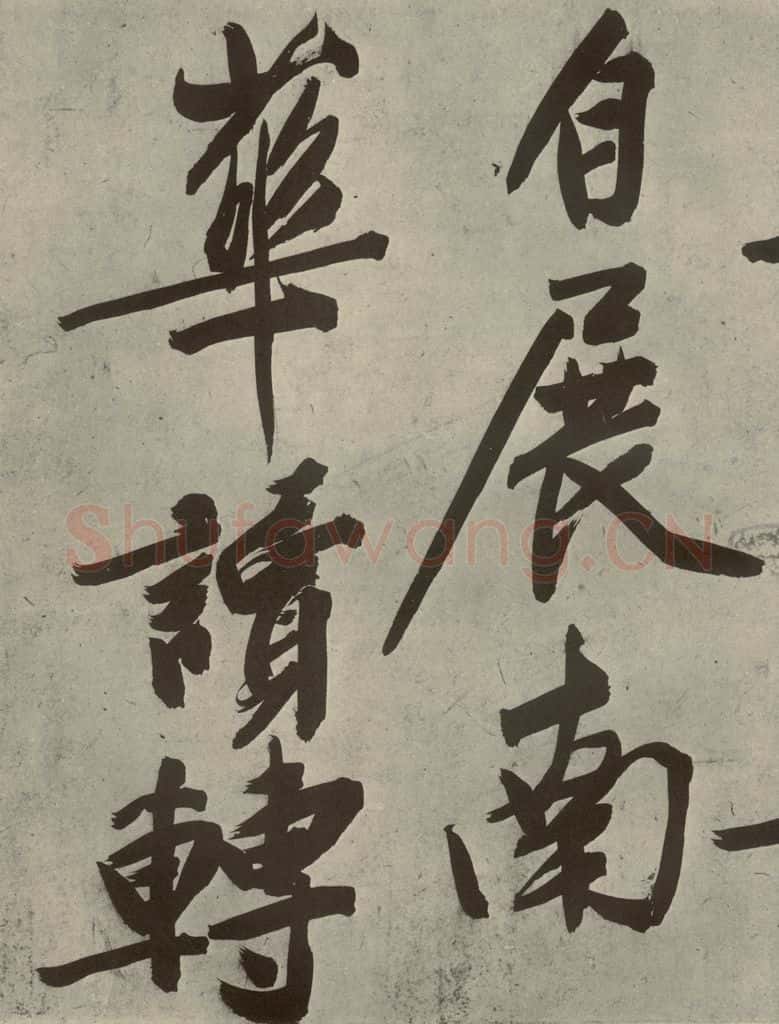 自展南
華讀轉
Shufawang.CN